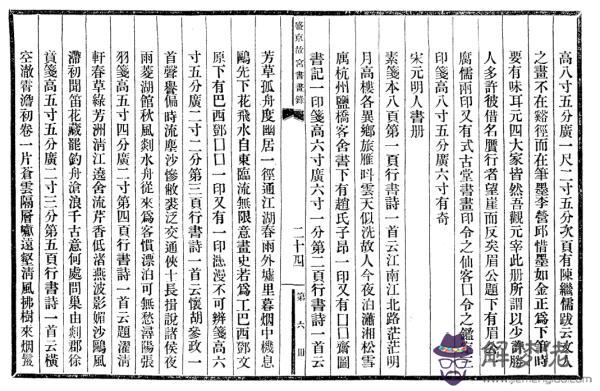 高八寸五分廣一尺二寸五分次頁有陳繼儒跋云文人
之畫不在谿徑而在筆墨李營邱惜墨如金正為下筆時
要有味耳元四大家皆然吾觀元宰此册所謂以少許勝
人多許彼借名贋行者望崖而反矣眉公題下有眉公
腐儒兩印又有式古堂書畫印令之仙客囗令之鑑定三
印箋高八寸五分廣六寸有奇
宋元明人書册
素箋本八頁第一頁行書詩一首云江南江北路茫茫明
月高樓各異鄉旅雁呌雲天似洗故人今夜泊瀟湘松雪
寓杭州鹽橋客舍書下有趙氏子昂一印又有囗囗齋圖
書記一印箋高六寸廣六寸一分第二頁行書詩一首云
盛京故宮書畫錄
二十四
第六册
芳草孤舟度幽居一徑通江湖春雨外墟里暮烟中機息
鷗先下花飛水自東臨流無限意畫史若為工巴西鄧文
原下有巴西鄧囗囗囗又有一印漶漫不可辨箋高六
寸五分廣二寸二分第三頁行書詩一首云懷胡參政一
首聲譽偏時流塵沙慘敝裘泛交通俠士長揖說諸侯夜
雨菱湖館秋風剡水舟從來為客慣漂泊可無愁潯陽張
羽箋高五寸四分廣二寸第四頁行書詩一首云題濯清
軒春草綠芳洲清江遠舍流芹香低渚燕波影媚沙鷗風
滯初聞笛花藏罷釣舟滄浪千古意何處問巢由剡郡徐
賁箋高五寸五分廣二寸三分第五頁行書詩一首云橫
空澈霄澹初卷一片蒼雲隔層巘遠壑清風拂樹來烟蘿